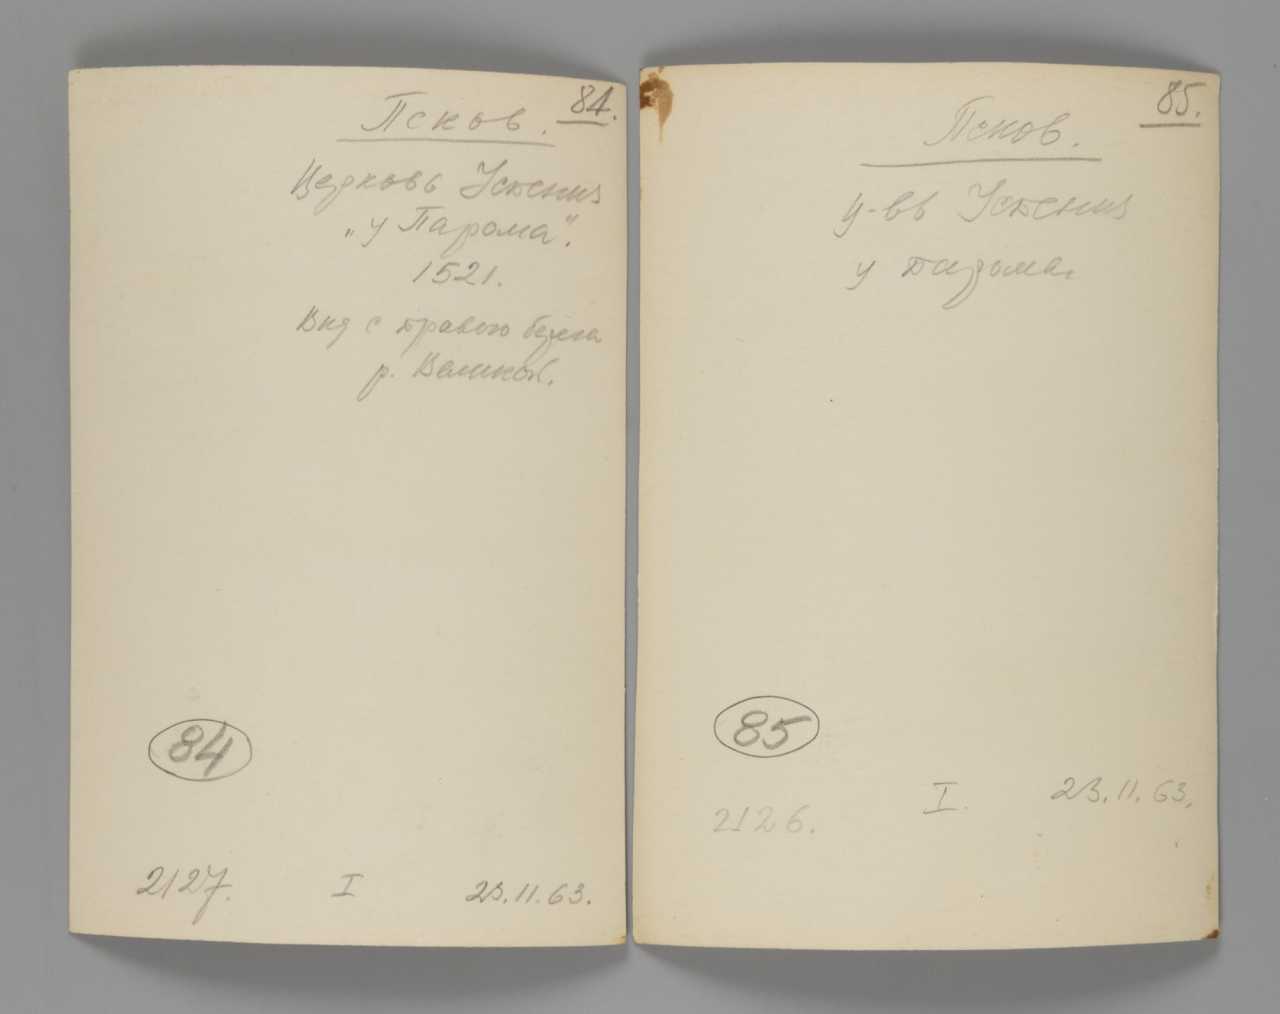 84.
Псков.
Церковь Успения
„у Парома".
1521.
Вид с правого берега
р. Великой.
84
2127. I 23.11.63.
85.
Псков.
ц-вь Успения
у парома.
85
I. 23.11.63.
2126.